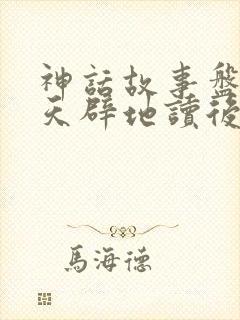 神話故事盤
天辟地讀後
馬海德